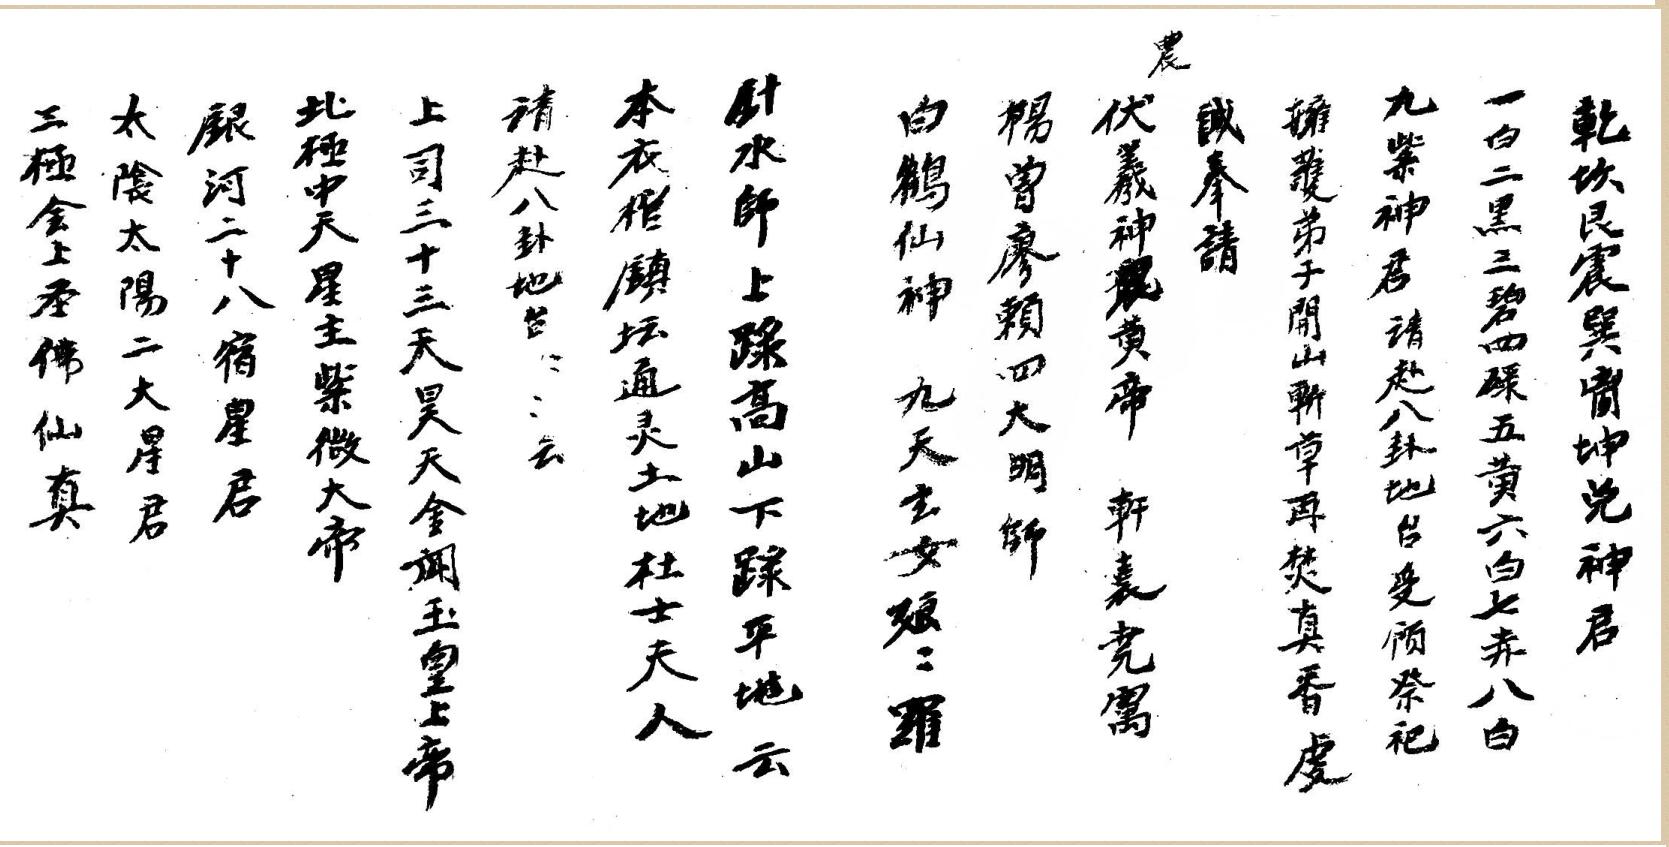 乾坎艮震巽離坤兌神君
一白二黑三碧四碌五黄六白七赤八白
九紫神君 請赴八卦地台受領祭祀
擁護弟子開山斬草再焚真香虔
誠奉請
農
伏羲神黄帝 軒袁尭
楊曾廖賴四大明師
白鶴仙神 九天玄女娘〻羅
針水師上踩高山下踩平地 云
本衣鎮坛通灵土地杜士夫人
請赴八卦地台〻〻云
上司三十三天昊天金闕玉皇上帝
北極中天星主紫微大帝
銀河二十八宿星君
太陰太陽二大星君
三極会上圣佛仙真